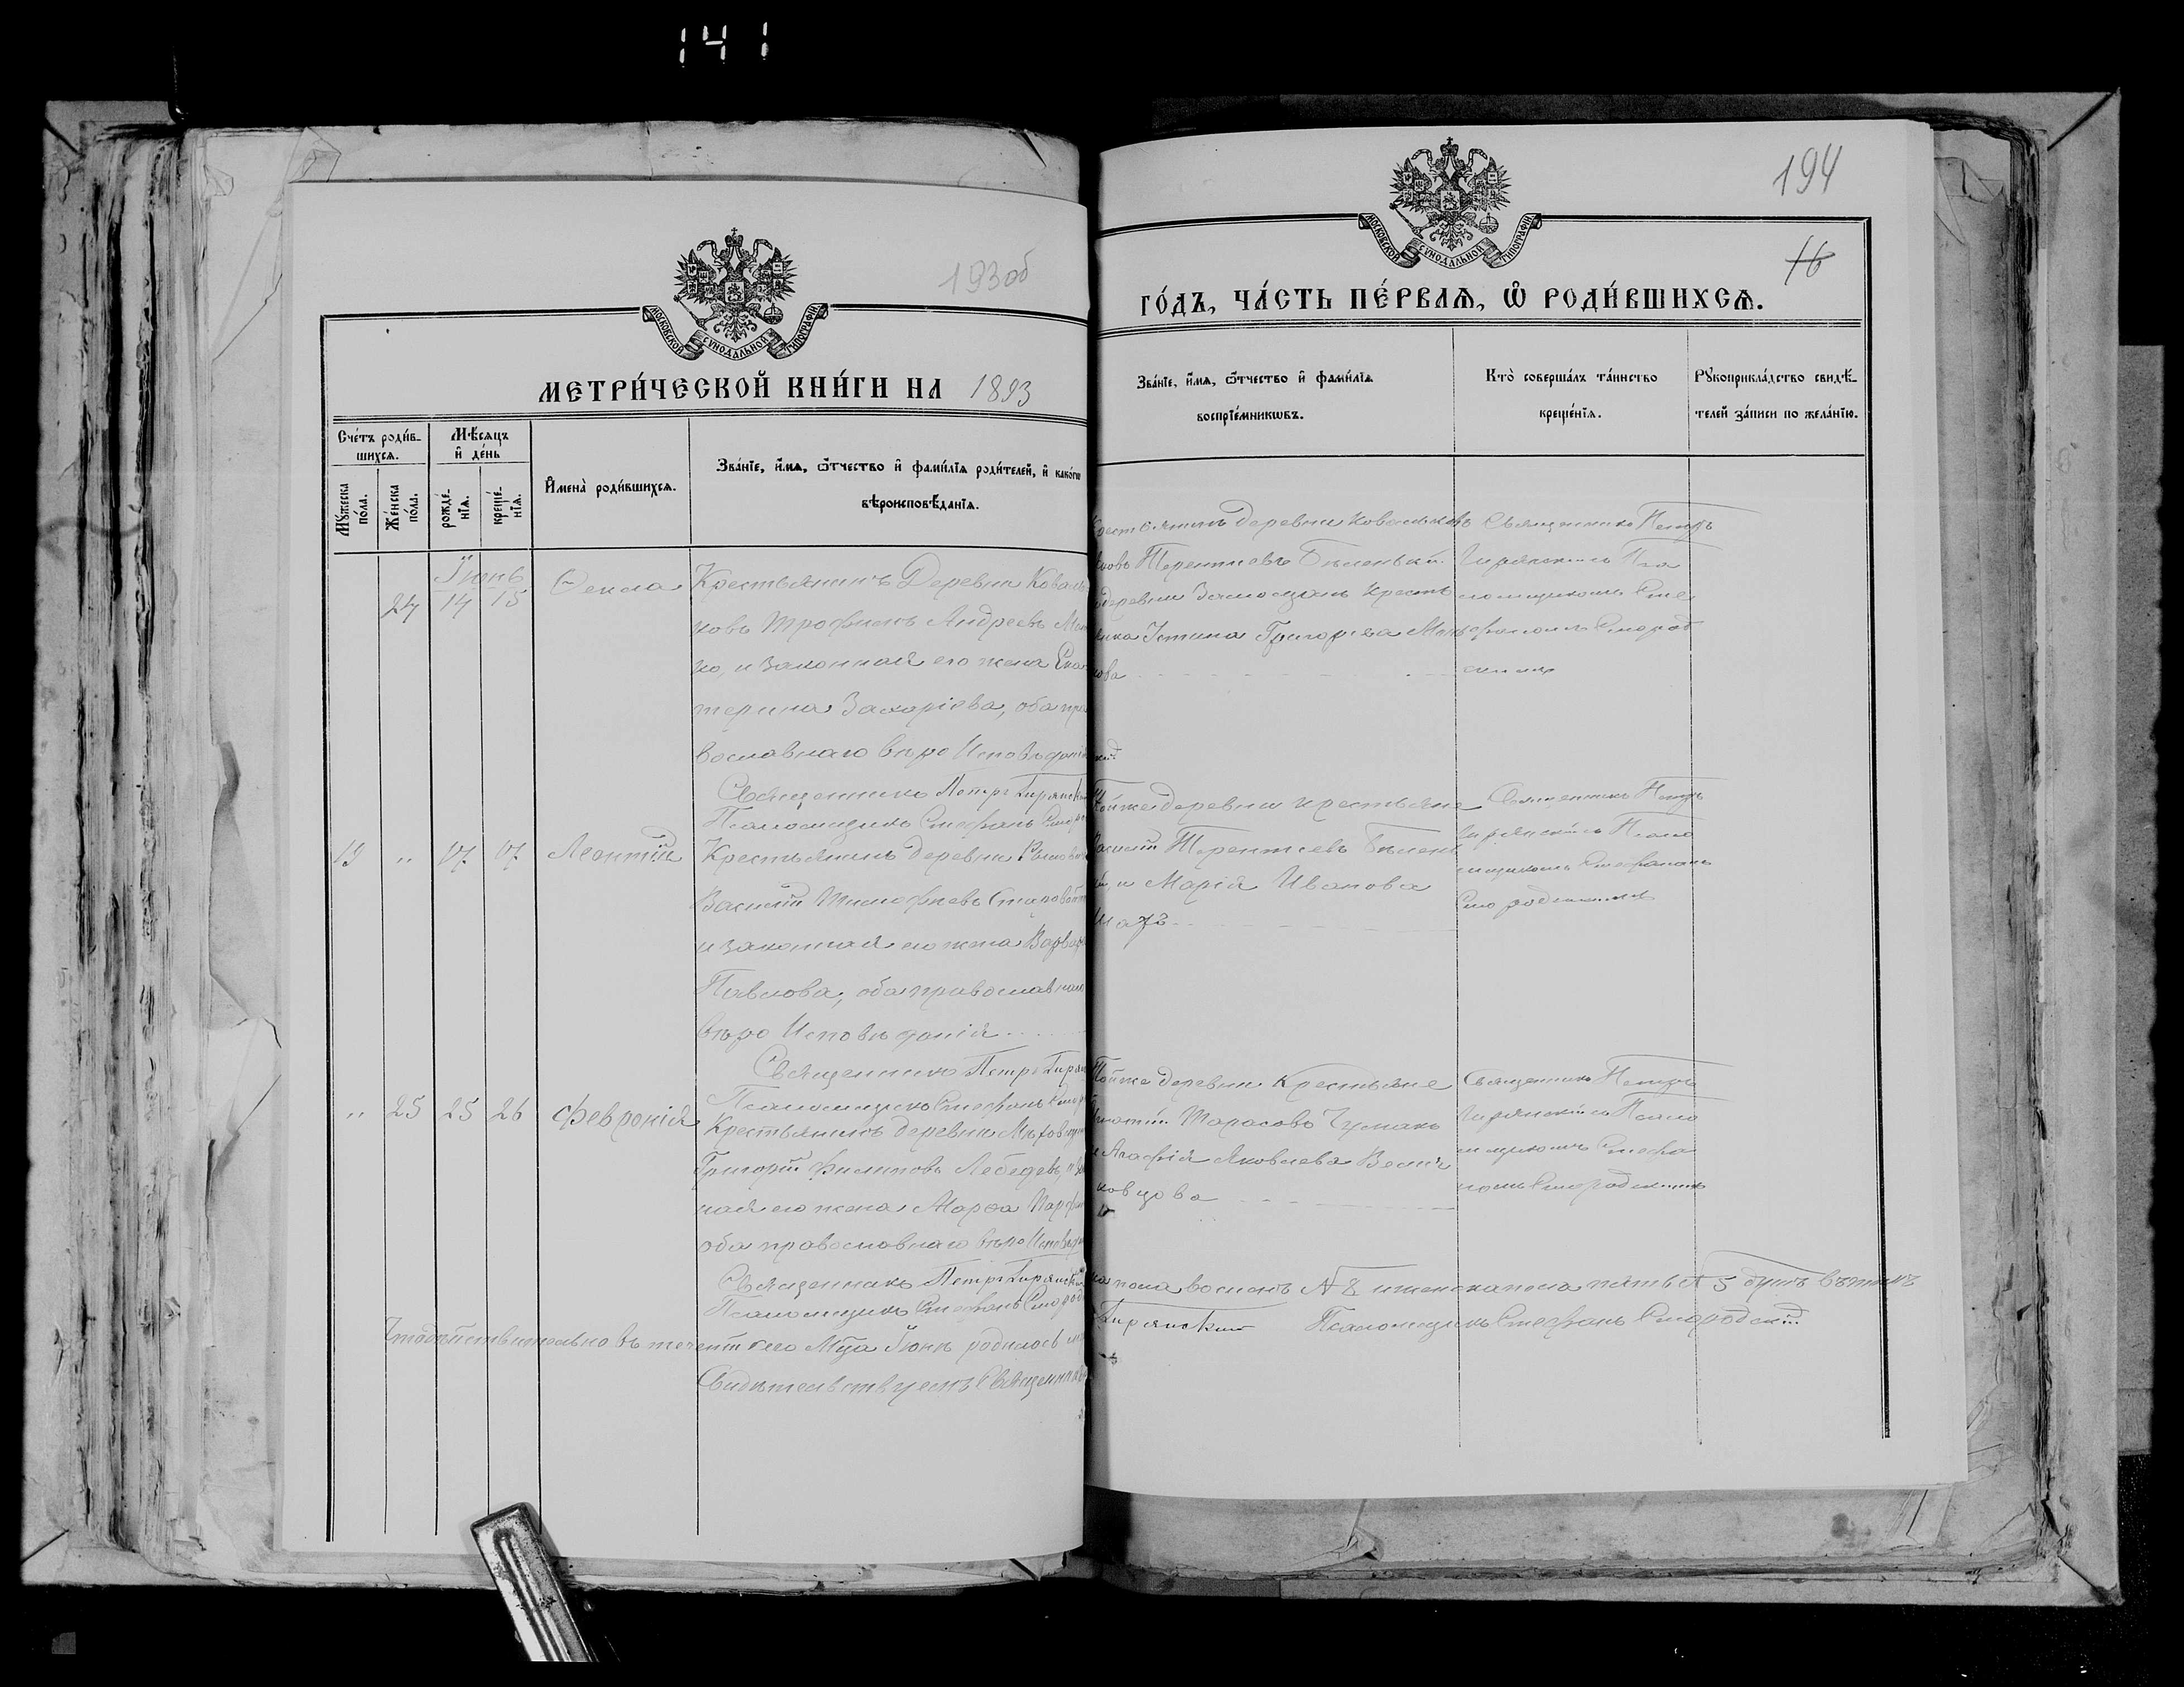 141
193об
МОСКОВСКОЙ СѴНОДАЛЬНОЙ ТИПОГРАФІИ
МЕТРИ́ЧЕСКОЙ КНИ́ГИ НА 1893
Сче́тъ роди́в-
шихсѧ.
Мѣ́сѧцъ
и҆ де́нь
Мꙋ́жеска
по́ла.
Же́нска
по́ла.
рожде́-
нїѧ.
креще́-
нїѧ.
И҆мена̀ роди́вшихсѧ.
Зва́нїе, и҆́мѧ, ѻ҆́тчество и҆ фами́лїѧ роди́телей, и҆ како́гѡ
вѣроисповѣ́данїѧ.
Іюнь
24 14 15 Ѳекла
Крестьянинъ Деревни Коваль
ковъ Трофимъ Андреевъ
ко, и законная его жена Ека
терина Захаріева, оба пра
вославнаго вѣро Исповѣданія
Священникъ Петръ Гирянск
Псаломщикъ Стефанъ
19 " 17 17 Леонтій
Крестьянинъ деревни
Василій Тимофѣевъ Старовойт
и законная его жена Варвара
Павлова, оба православнаго
вѣро Исповѣданія
Священникъ Петръ Гирян
Псаломщикъ Стефанъ
" 25 25 26 Февронія
Крестьянинъ деревни
Григорій Филиповъ Лебедевъ, и
ная его жена Марѳа
оба православнаго вѣро Исповѣд
Священникъ Петръ Гирянск
Псаломщикъ Стефанъ
Что дѣйствительно въ теченіи сего Мца Іюнѣ родилось
Свидѣтельствуемъ Священникъ
194
16
МОСКОВСКОЙ СѴНОДАЛЬНОЙ ТИПОГРАФІИ
ГО́ДЪ, ЧА́СТЬ ПЕ́РВАѦ, Ѽ РОДИ́ВШИХСѦ.
Зва́нїе, и҆́мѧ, ѻ҆́тчество и҆ фами́лїѧ
воспрїе́мникѡвъ.
Кто̀ соверша́лъ та́инство
креще́нїѧ.
Рꙋкоприкла́дство свидѣ́-
телей за́писи по жела́нїю.
Крестьянинъ деревни Ковальковъ
Терентіевъ Бѣленькій
деревни Замосцянъ Крест
Устина Григорьева
кова
Священникъ Петръ
Гирянскій съ Пса
ломщикомъ Сте
фаномъ Смород
скимъ
Тойже деревни крестьяне
Василій Терентіевъ Бѣлень
кій, и Марія Иванова
Священникъ Петръ
Гирянскій съ Псало
мщикомъ Стефаномъ
Смородскимъ
Тойже деревни Крестьяне
Тарасовъ Чумакъ
и Агафія Яковлева Велич
ковцова
Священникъ Петръ
Гирянскій съ Псало
мщикомъ Стефа
номъ Смородскимъ
ка пола восемь № 8 и женска пола пять № 5 душъ въ томъ
Гирянскій Псаломщикъ Стефанъ Смородскій